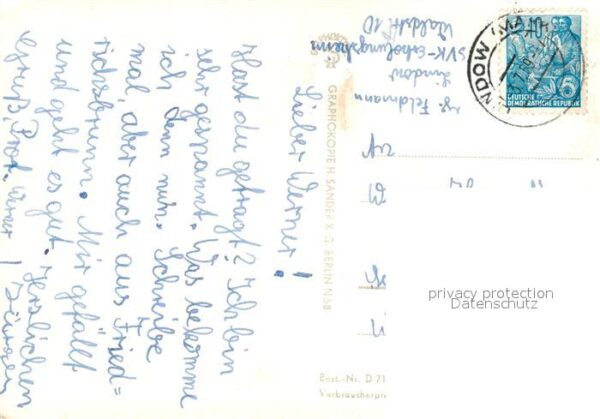 Lieber Werner!
Hast du gefragt? Ich bin
sehr gespannt. Was bekomme
ich denn nun. Schreibe
mal, aber auch aus Fried=
richsbrunn. Mir gefällt
und geht es gut. Herzlichen
Gruß, Prof. Werner!
Jürgen
Feldmann
Lindow
SVK-Erholungsheim
Waldstr. 10
GRAPHOKOPIE H. SANDER K. G. BERLIN N 58
NDOW (MARK
DEUTSCHE
DEMOKRATISCHE REPUBLIK
6
privacy protection
Datenschutz
Best.-Nr. D 71
Verbraucherpr